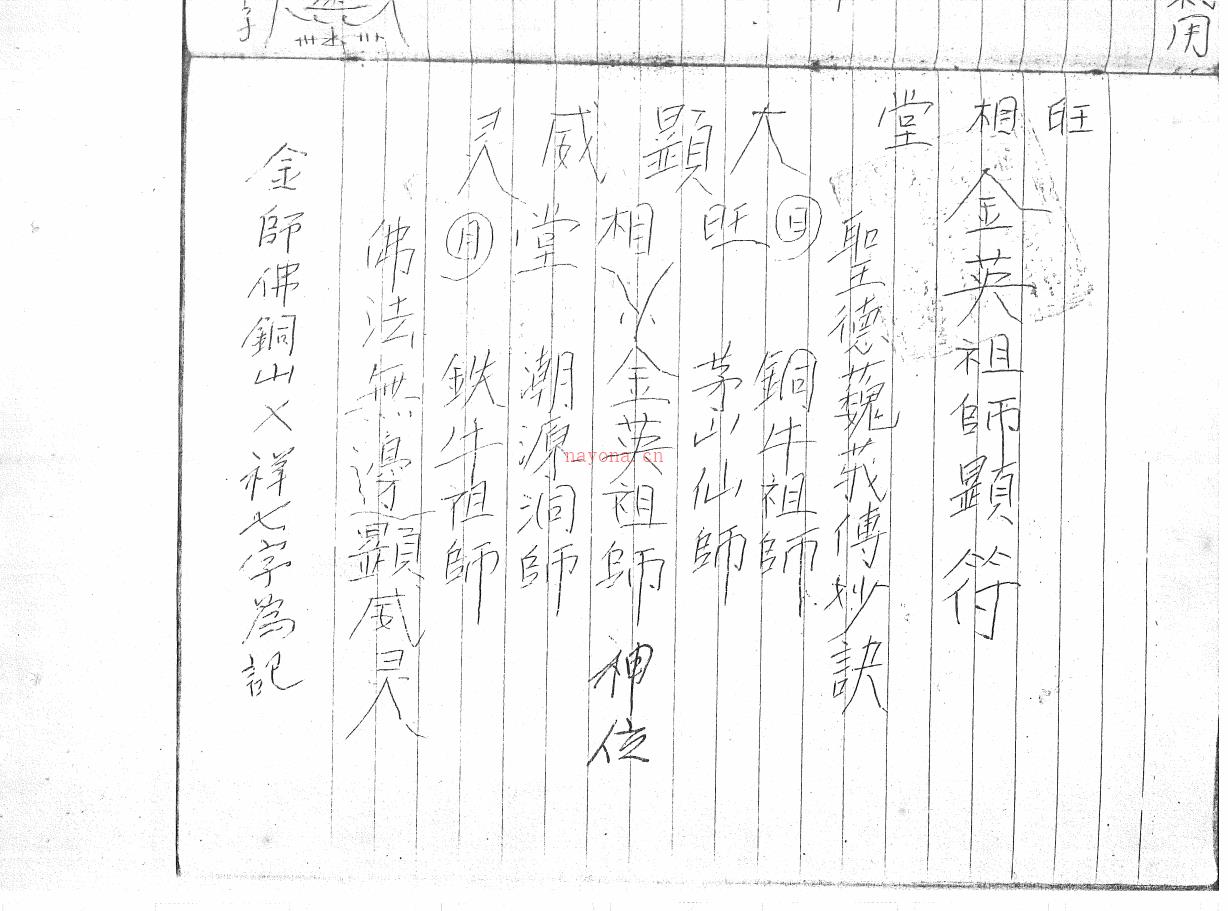 用
字
旺 相 堂
金英祖師顕符
聖德巍莪傳妙訣
大顕威灵
日 旺 相 堂 月
銅牛祖師
茅山仙師
金英祖師神位
潮源洞師
鉄牛祖師
佛法無邊顕威灵
金師佛銅山乂祥七字為記
nayona.cn